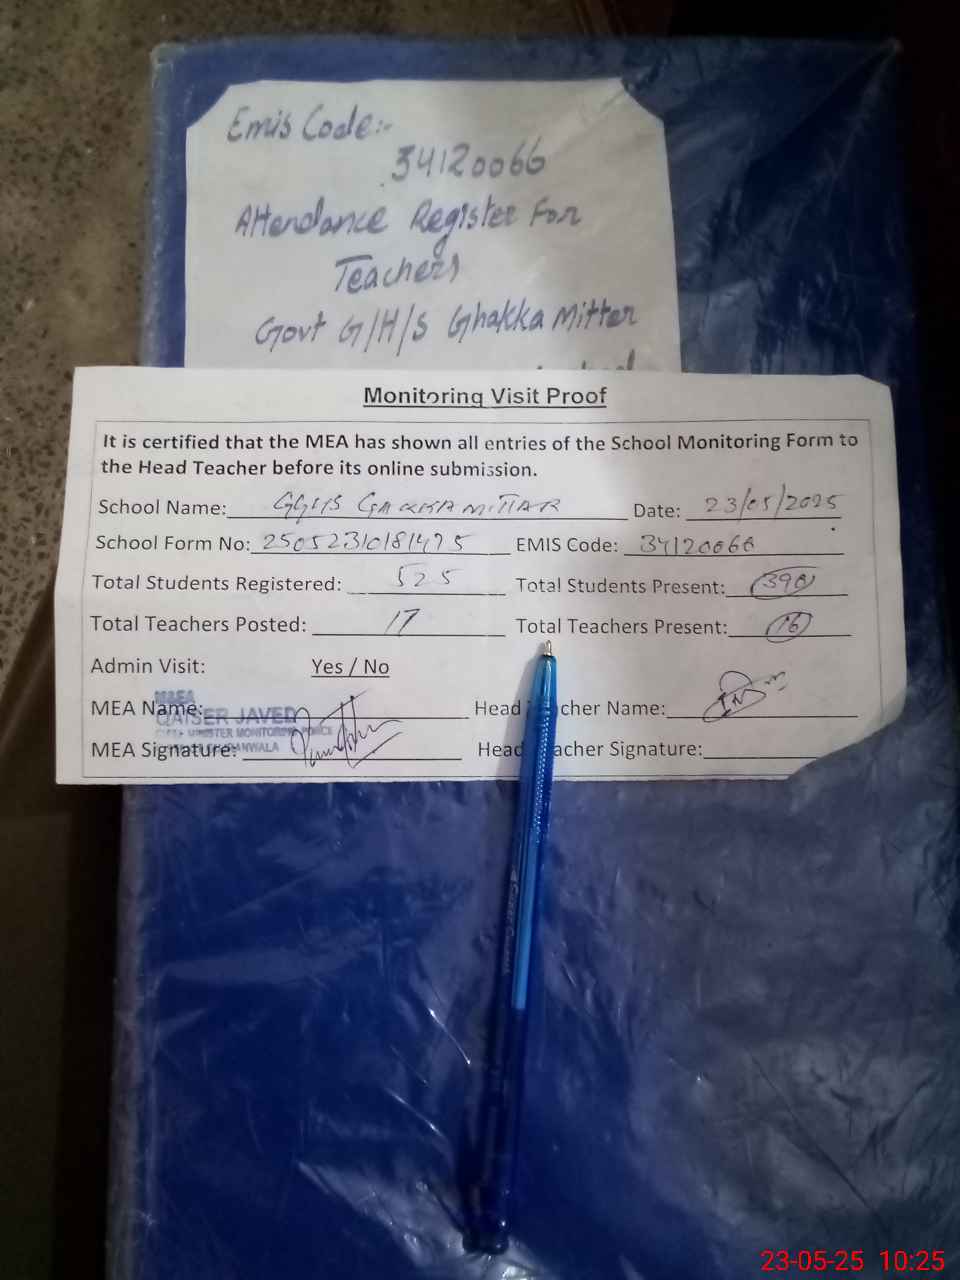 Emis Code:-
34120066
Attendance Register For
Teachers
Govt G/H/S Ghakka Mitter
Monitoring Visit Proof
It is certified that the MEA has shown all entries of the School Monitoring Form to
the Head Teacher before its online submission.
School Name: GGHS GAKKA MITTAR Date: 23/05/2025
School Form No: 25052310181475 EMIS Code: 34120066
Total Students Registered: 525 Total Students Present: 390
Total Teachers Posted: 17 Total Teachers Present: 16
Admin Visit: Yes / No
MEA
MEA Name: QAISER JAVED Head Teacher Name:
MINISTER MONITORING FORCE
MEA Signature: Head Teacher Signature:
23-05-25 10:25